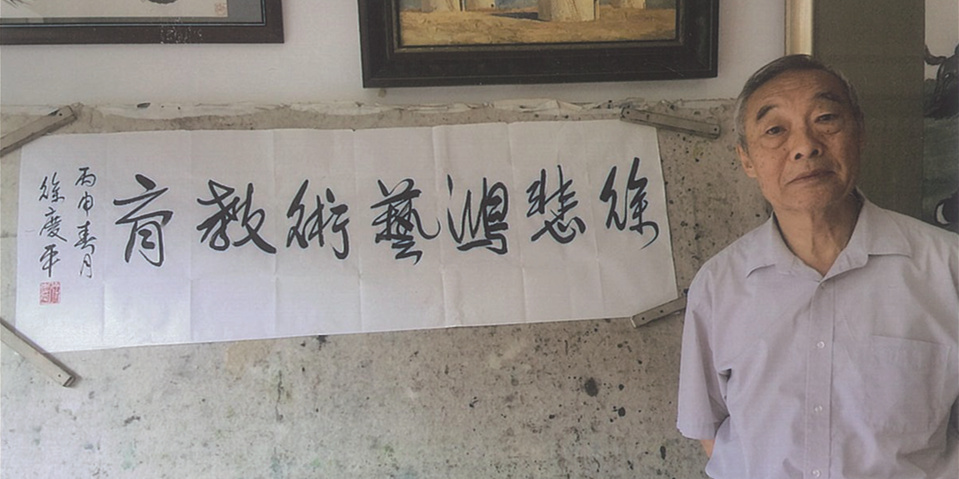 徐悲鴻藝術教育
丙申春月
徐慶平